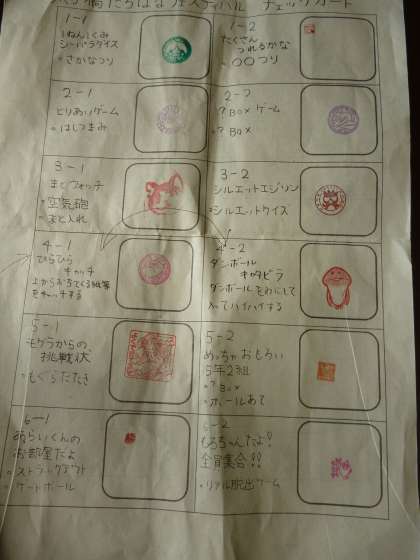 たちばなフェスティバル チェックカード
1-1
1ねん1くみ
シーパラダイス
・さかなつり
1-2
たくさん
つれるかな
・〇〇つり
2-1
とりあいゲーム
・はしつまみ
2-2
?Boxゲーム
・?Box
3-1
まとフォッチ
・空気砲
・まと入れ
3-2
シルエットエジソン
・シルエットクイズ
4-1
ひらひら
キャッチ
上からおちてくる紙等
をキャッチする
4-2
ダンボール
キャタピラ
ダンボールをわにして
入ってハイハイする
5-1
モグラからの
挑戦状
・もぐらたたき
5-2
めっちゃおもろい
5年2組
・?Box
・ボールあて
6-1
あらいくんの
お部屋だよ
・ストラックアウト
・ゲートボール
6-2
もろちゃんだよ!
全員集合!!
・リアル脱出ゲーム